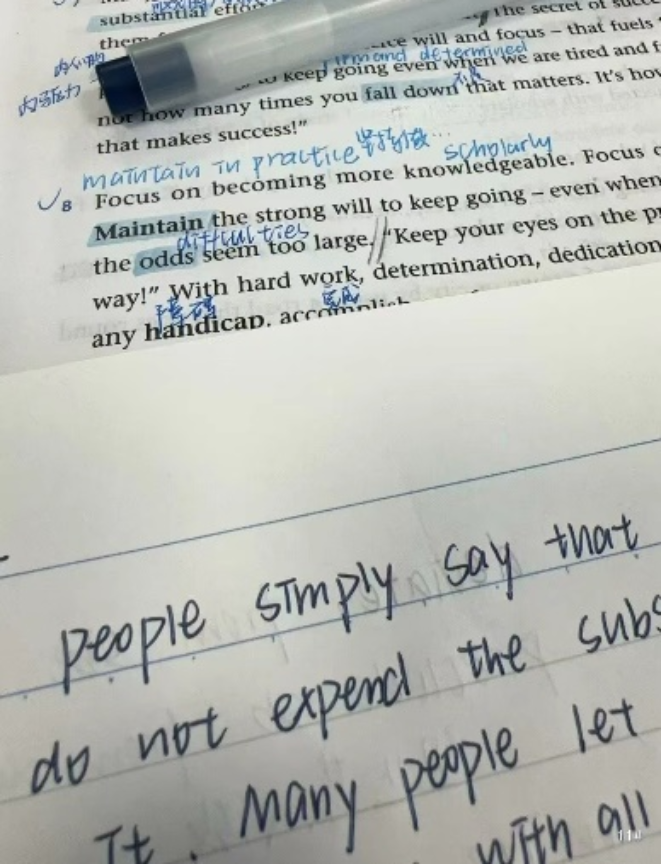 substantial effo
them
The secret of succ
ce will and focus – that fuels
firm and determined
内心的
内驱力
to keep going even when we are tired and f
not how many times you fall down that matters. It's how
that makes success!"
maintain in practice 坚持做…
scholarly
8 Focus on becoming more knowledgeable. Focus o
Maintain the strong will to keep going – even when
difficulties
the odds seem too large. // "Keep your eyes on the pr
way!" With hard work, determination, dedication
障碍
完成
any handicap, accomplish
people simply say that
do not expend the subs
it. Many people let
with all